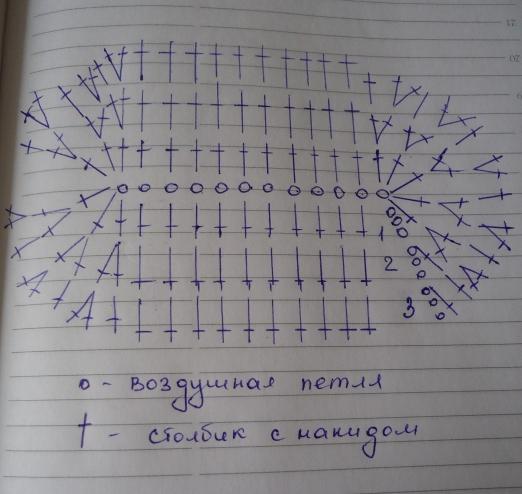 1
2
3
o - воздушная петля
† - столбик с накидом